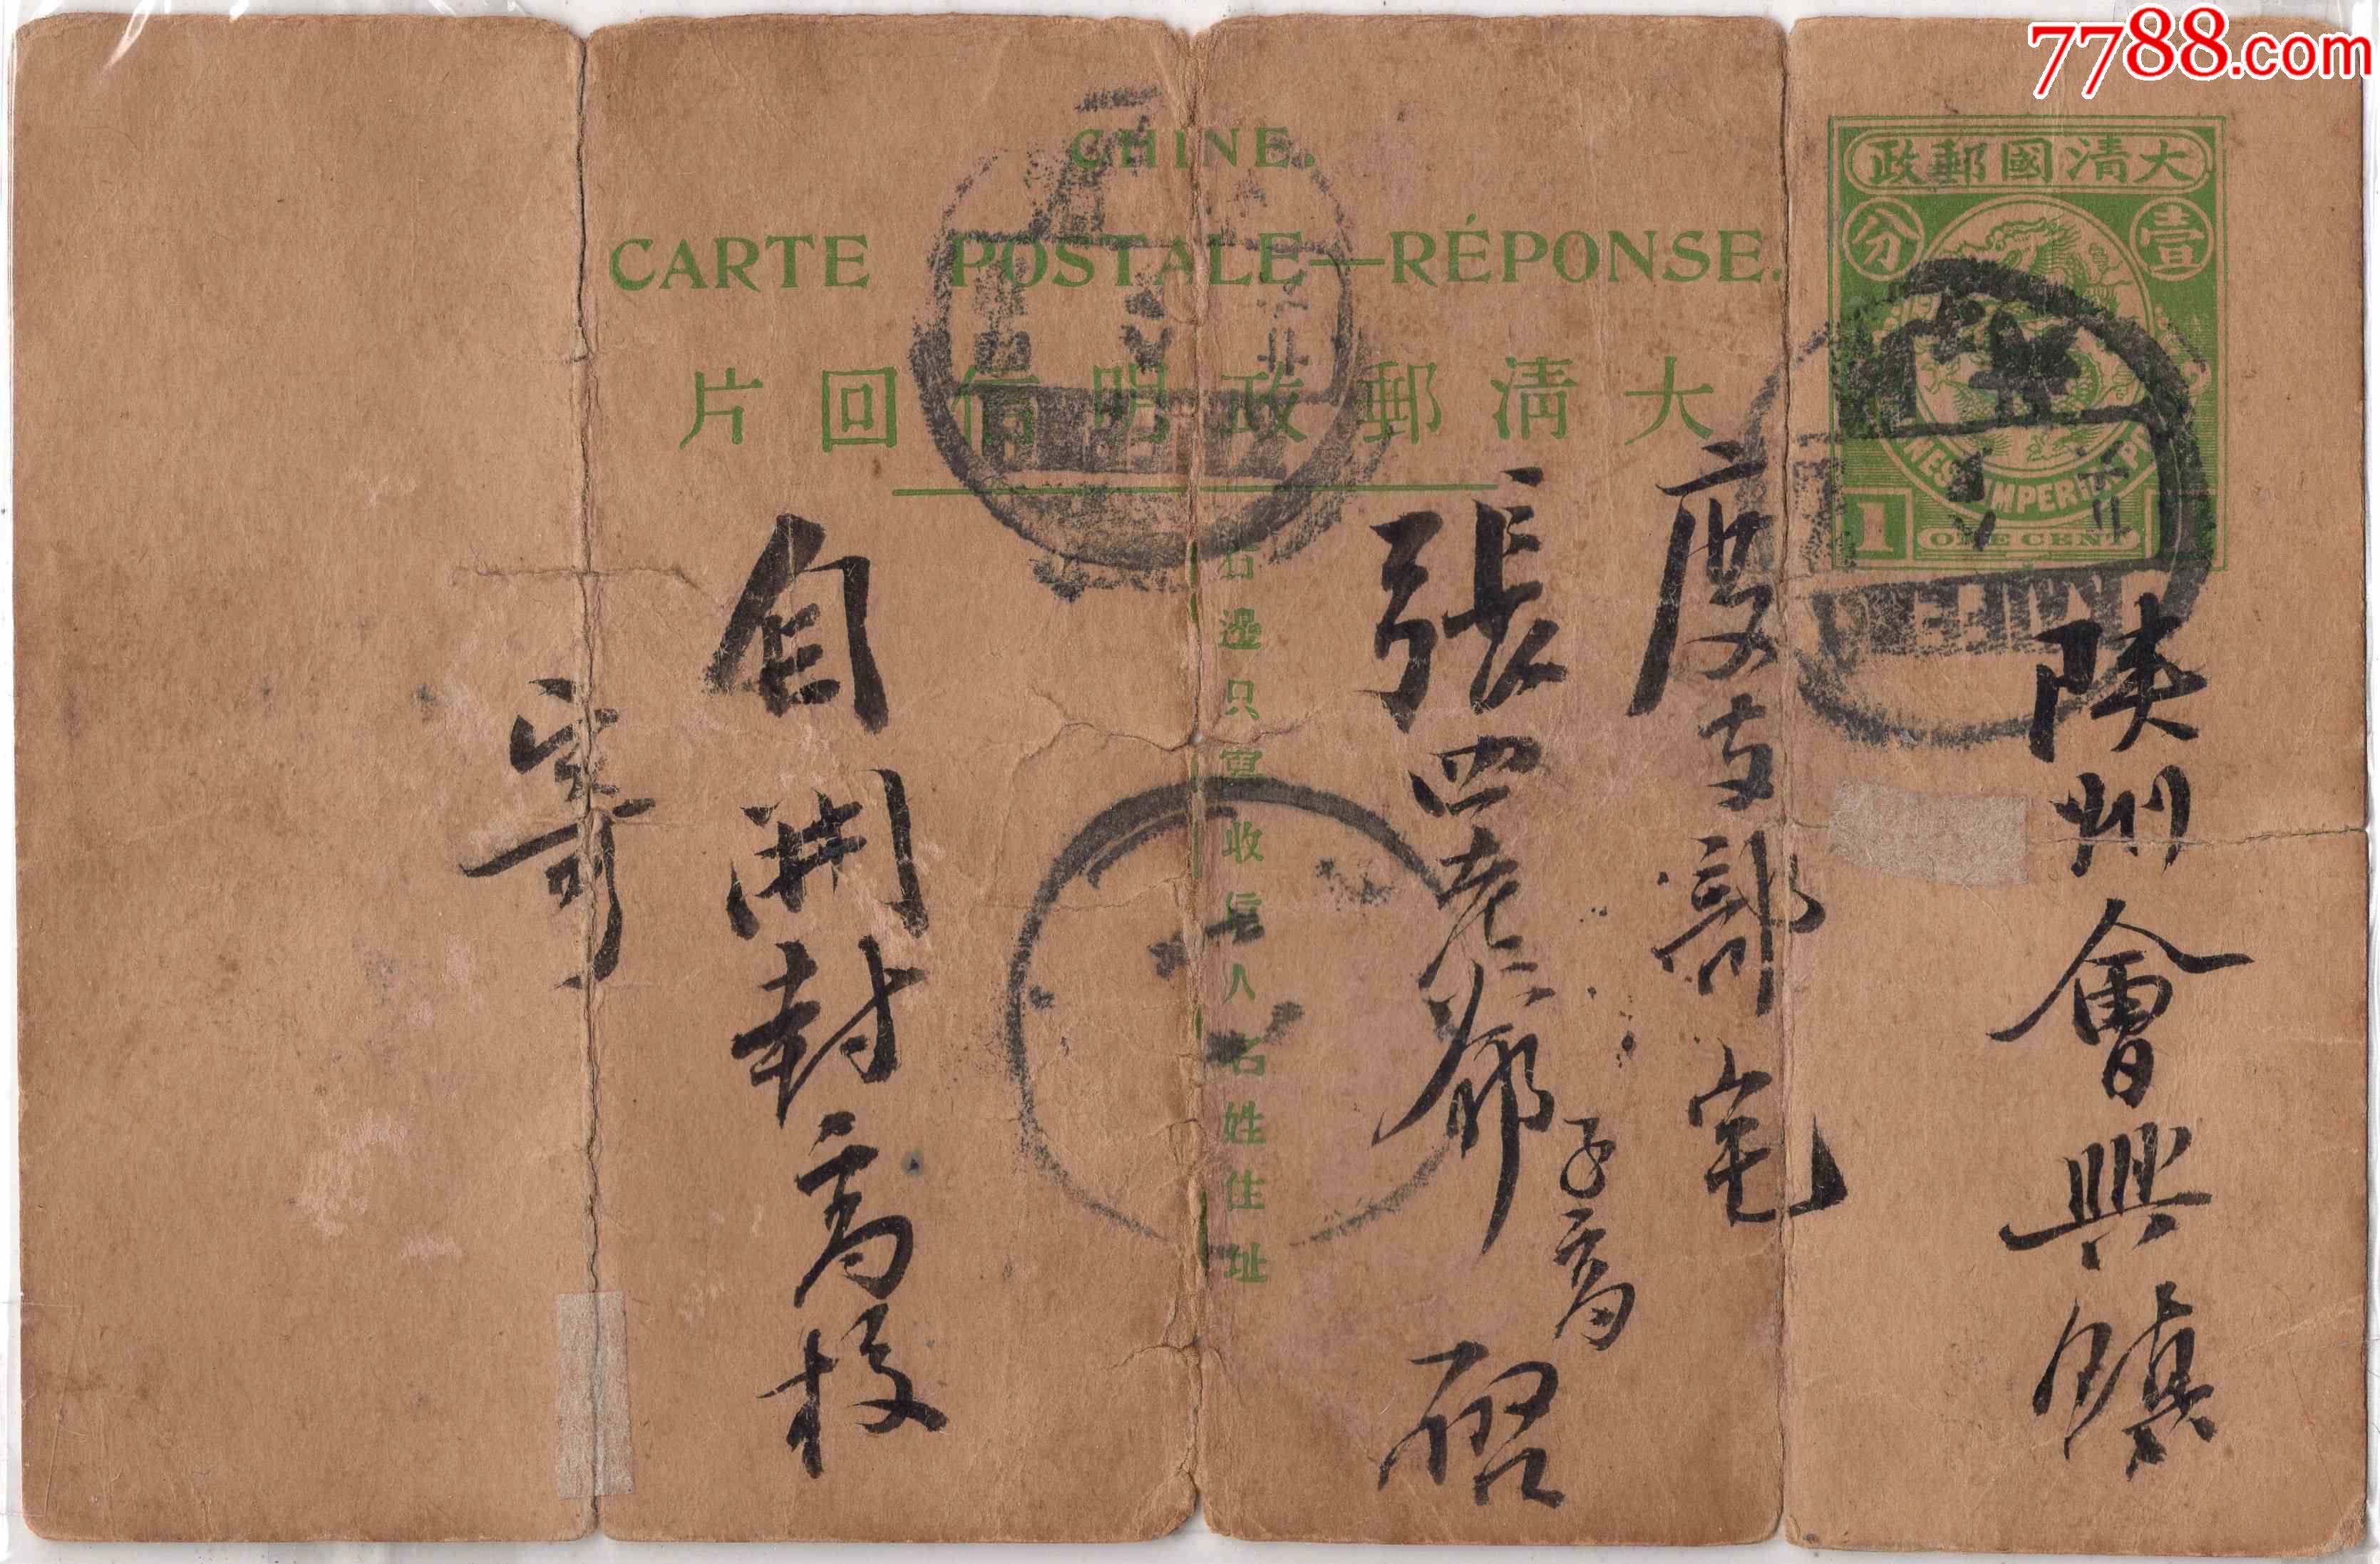 7788.com
CHINE.
CARTE POSTALE—RÉPONSE.
大清郵政明信回片
大清國郵政
壹分
CHINESE IMPERIAL POST
1 ONE CENT
右邊只寫收信人名姓住址
陝州會興鎮
度支部宅
張四老爺子喬啟
自開封高校
寄
KAIFENG